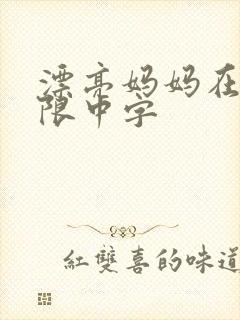 漂亮妈妈在
限中字
紅雙喜的味道